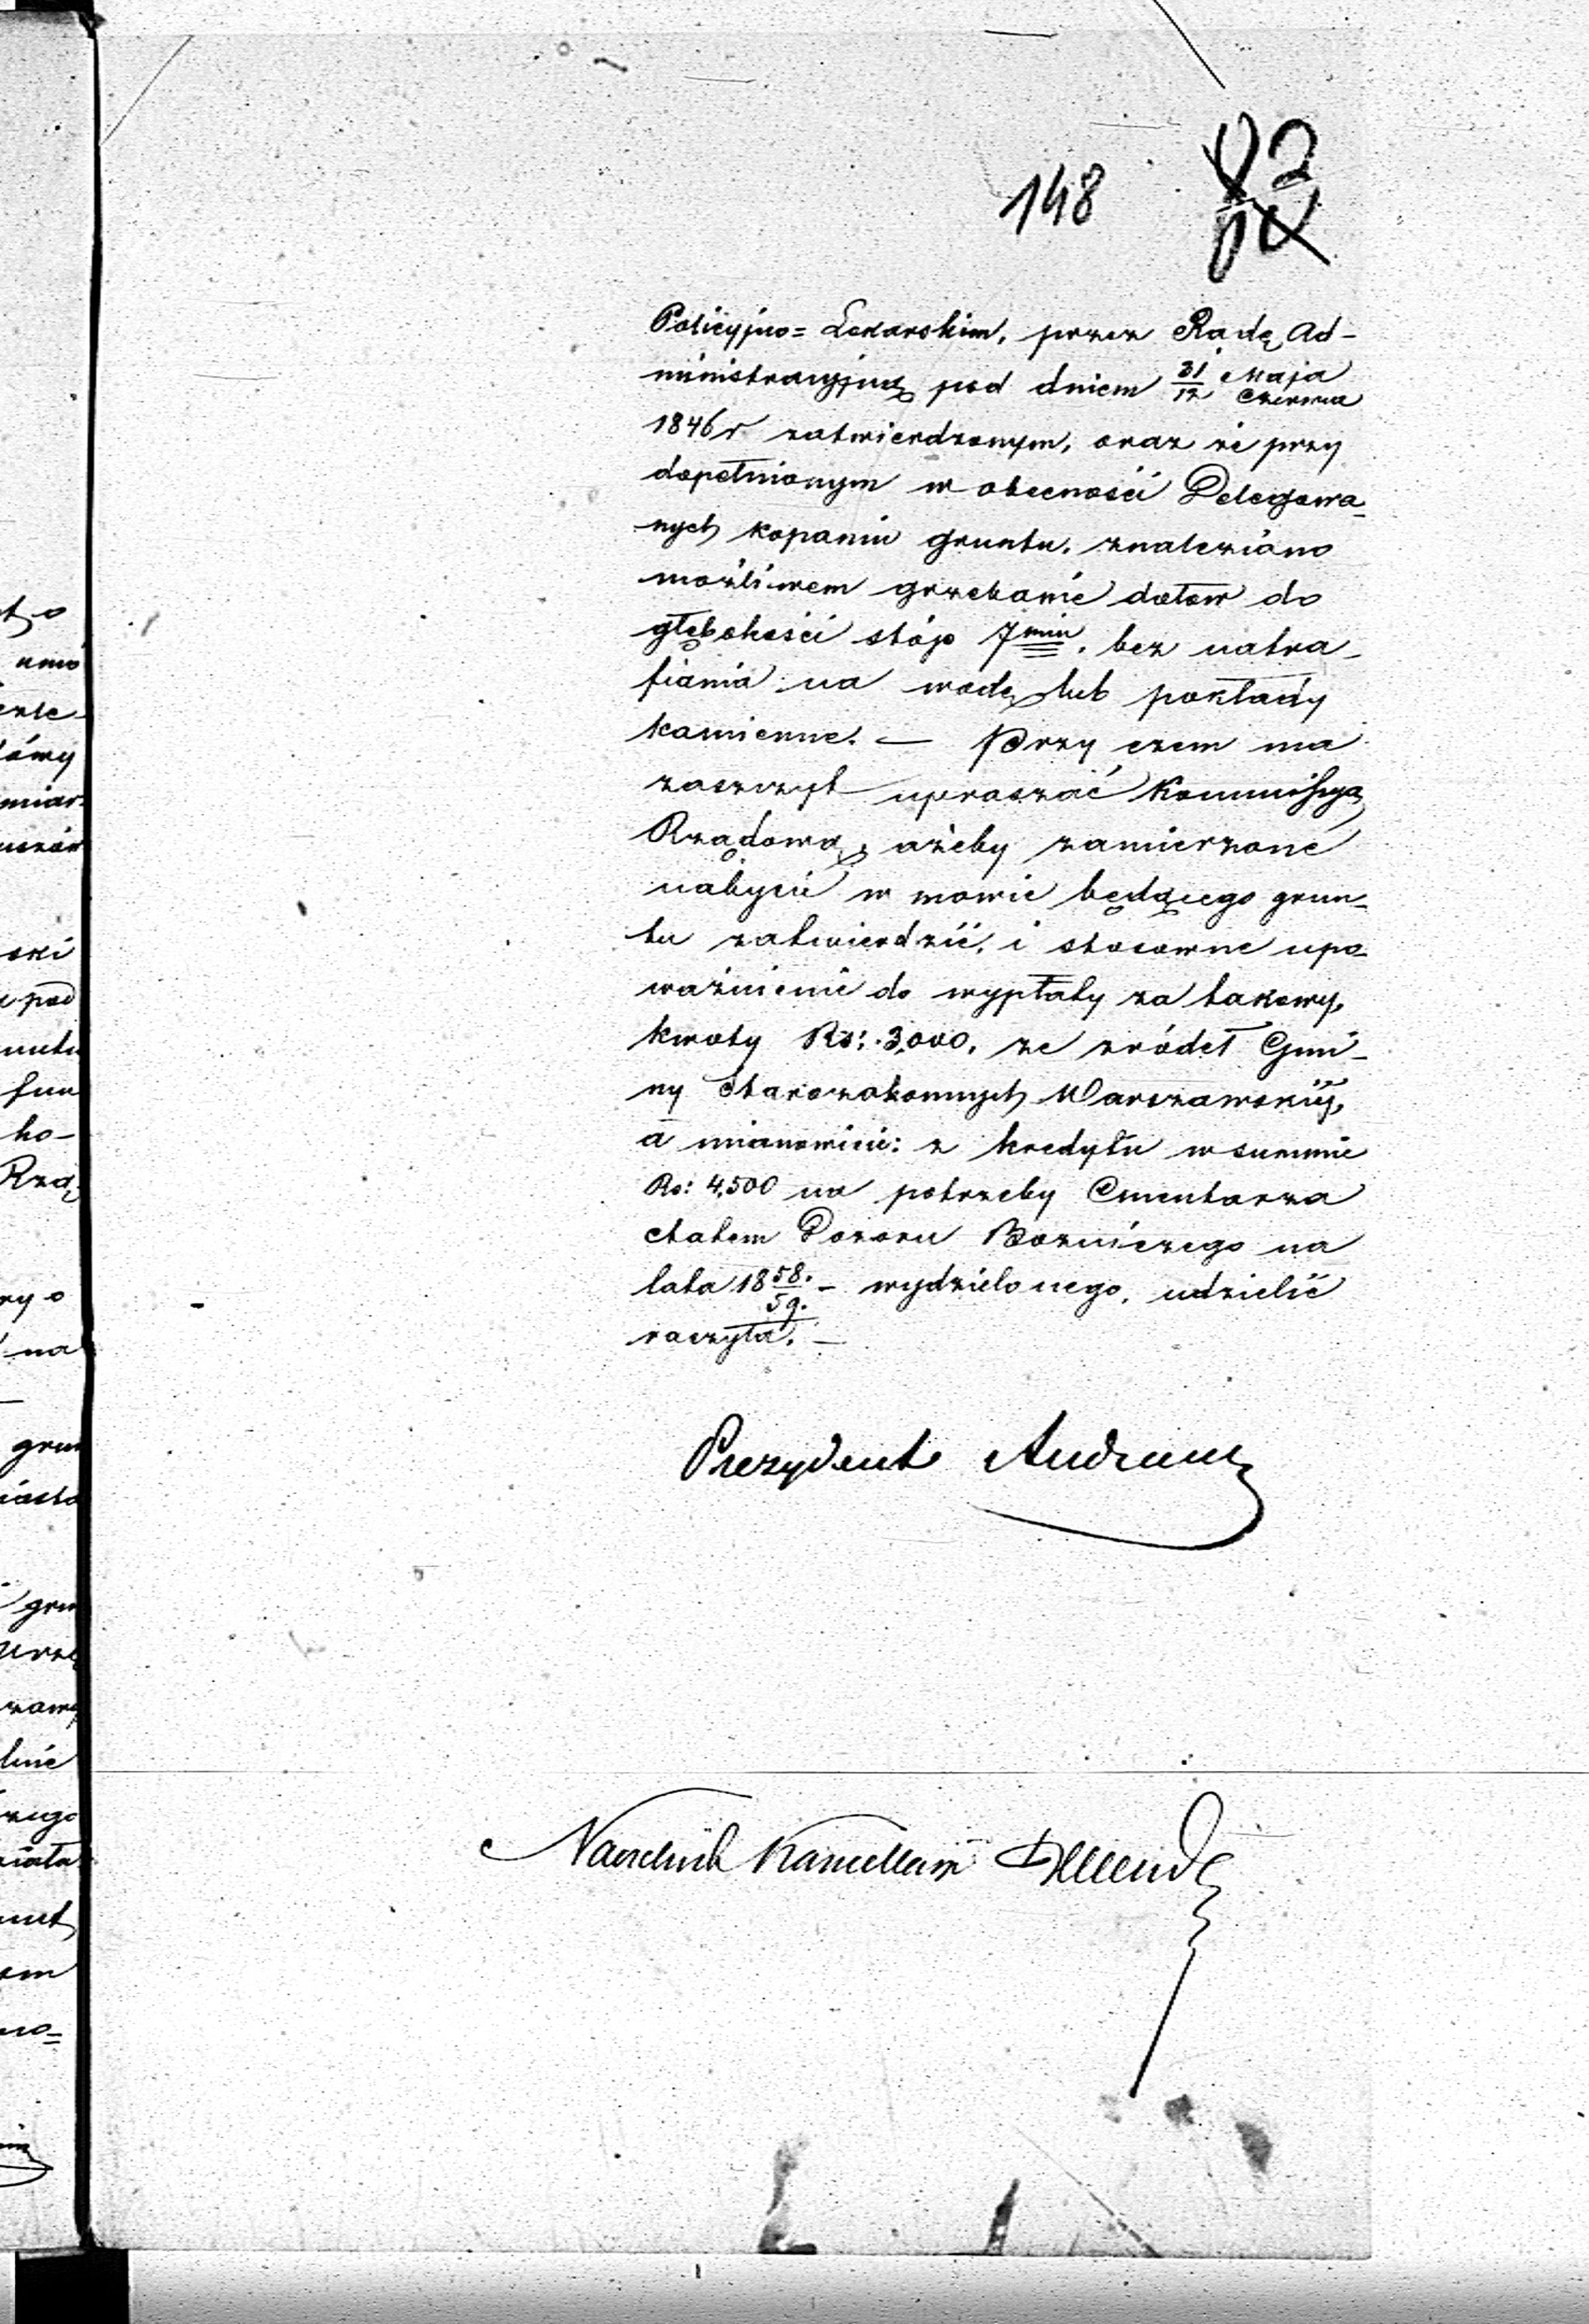 148
82
Policyjno= Lekarskim, przez Radę Ad-
ministracyjną pod dniem 31/12 Maja/Czerwca
1846 r zatwierdzonym, oraz że przy
dopełnionym w obecności Delegowa=
nych kopaniu gruntu, znaleziono
możliwem grzebanie dołów do
głębokości stóp 7miu, bez natra-
fiania na wodę lub pokłady
kamienne. — Przy czem ma
zaszczyt upraszać Kommissyą
Rządową, ażeby zamierzone
nabycie w mowie będącego grun-
tu zatwierdzić, i stosowne upo-
ważnienie do wypłaty za takowy,
kwoty Rs: 3,000, ze źródeł Gmi-
ny Starozakonnych Warszawskiéj,
a mianowicie: z kredytu w summie
Rs: 4,500 na potrzeby Cmentarza
etatem Dozoru Bożniczego na
lata 1858/59. – wydzielonego, udzielić
raczyła. —
Prezydent Andrault
Naczelnik Kancellarii